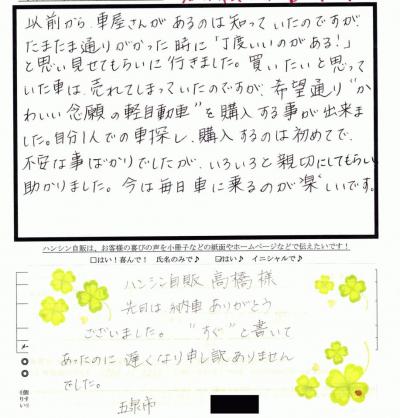 以前から、車屋さんがあるのは知っていたのですが、
たまたま通りがかった時に「丁度いいのがある！」
と思い見せてもらいに行きました。買いたいと思って
いた車は、売れてしまっていたのですが、希望通り“か
わいい念願の軽自動車”を購入する事が出来ま
した。自分1人での車探し、購入するのは初めてで、
不安な事ばかりでしたが、いろいろと親切にしてもらい
助かりました。今は毎日車に乗るのが“楽”しいです。
ハンシン自販は、お客様の喜びの声を小冊子などの紙面やホームページなどで伝えたいです！
□はい！喜んで！ 氏名のみで♪ ☑はい♪ イニシャルで♪
ハンシン自販 高橋様
先日は納車ありがとう
ございました。“すぐ”と書いて
あったのに、遅くなり申し訳ありません
でした。
五泉市